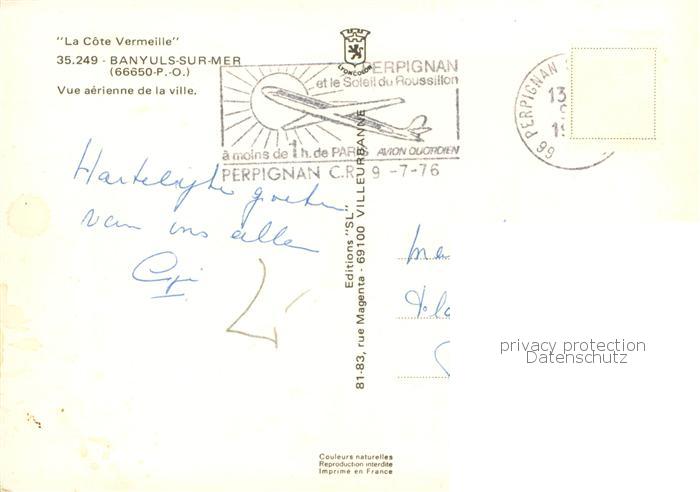 "La Côte Vermeille"
35.249 - BANYULS-SUR-MER
(66650-P.-O.)
Vue aérienne de la ville.
LYONCOLOR
PERPIGNAN
et le Soleil du Roussillon
à moins de 1 h. de PARIS AVION QUOTIDIEN
PERPIGNAN C.R. 9 -7-76
PERPIGNAN
13
99
Hartelijke groeten
van ons allen
Editions "SL"
81-83, rue Magenta - 69100 VILLEURBANNE
privacy protection
Datenschutz
Couleurs naturelles
Reproduction interdite
Imprimé en France